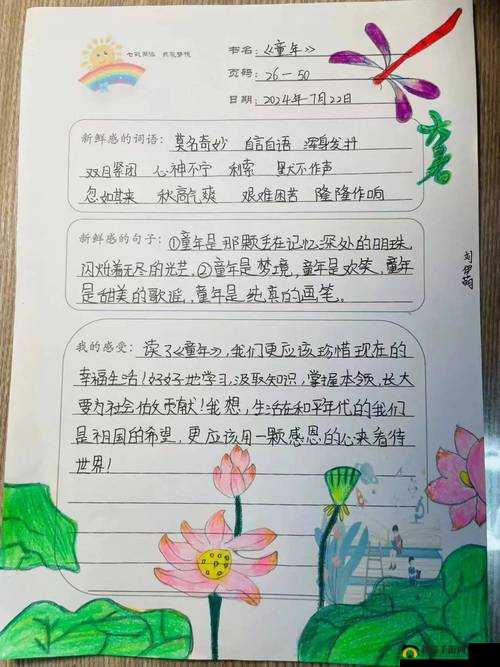 七彩阅读 放飞梦想
书名：《童年》
页码：26-50
日期：2024年7月22日
大暑
新鲜感的词语：莫名奇妙 自言自语 浑身发抖
双目紧闭 心神不宁 利索 默不作声
忽如其来 秋高气爽 艰难困苦 隆隆作响
新鲜感的句子：①童年是那颗丢在记忆深处的明珠，
闪烁着无尽的光芒。②童年是梦境，童年是欢笑，童年
是甜美的歌谣，童年是纯真的画笔。
刘伊萌
我的感受：读了《童年》，我们更应该珍惜现在的
幸福生活！好好地学习，汲取知识，掌握本领，长大
要为社会做贡献！我想，生活在和平年代的我们
是祖国的希望，更应该用一颗感恩的心来看待
世界！